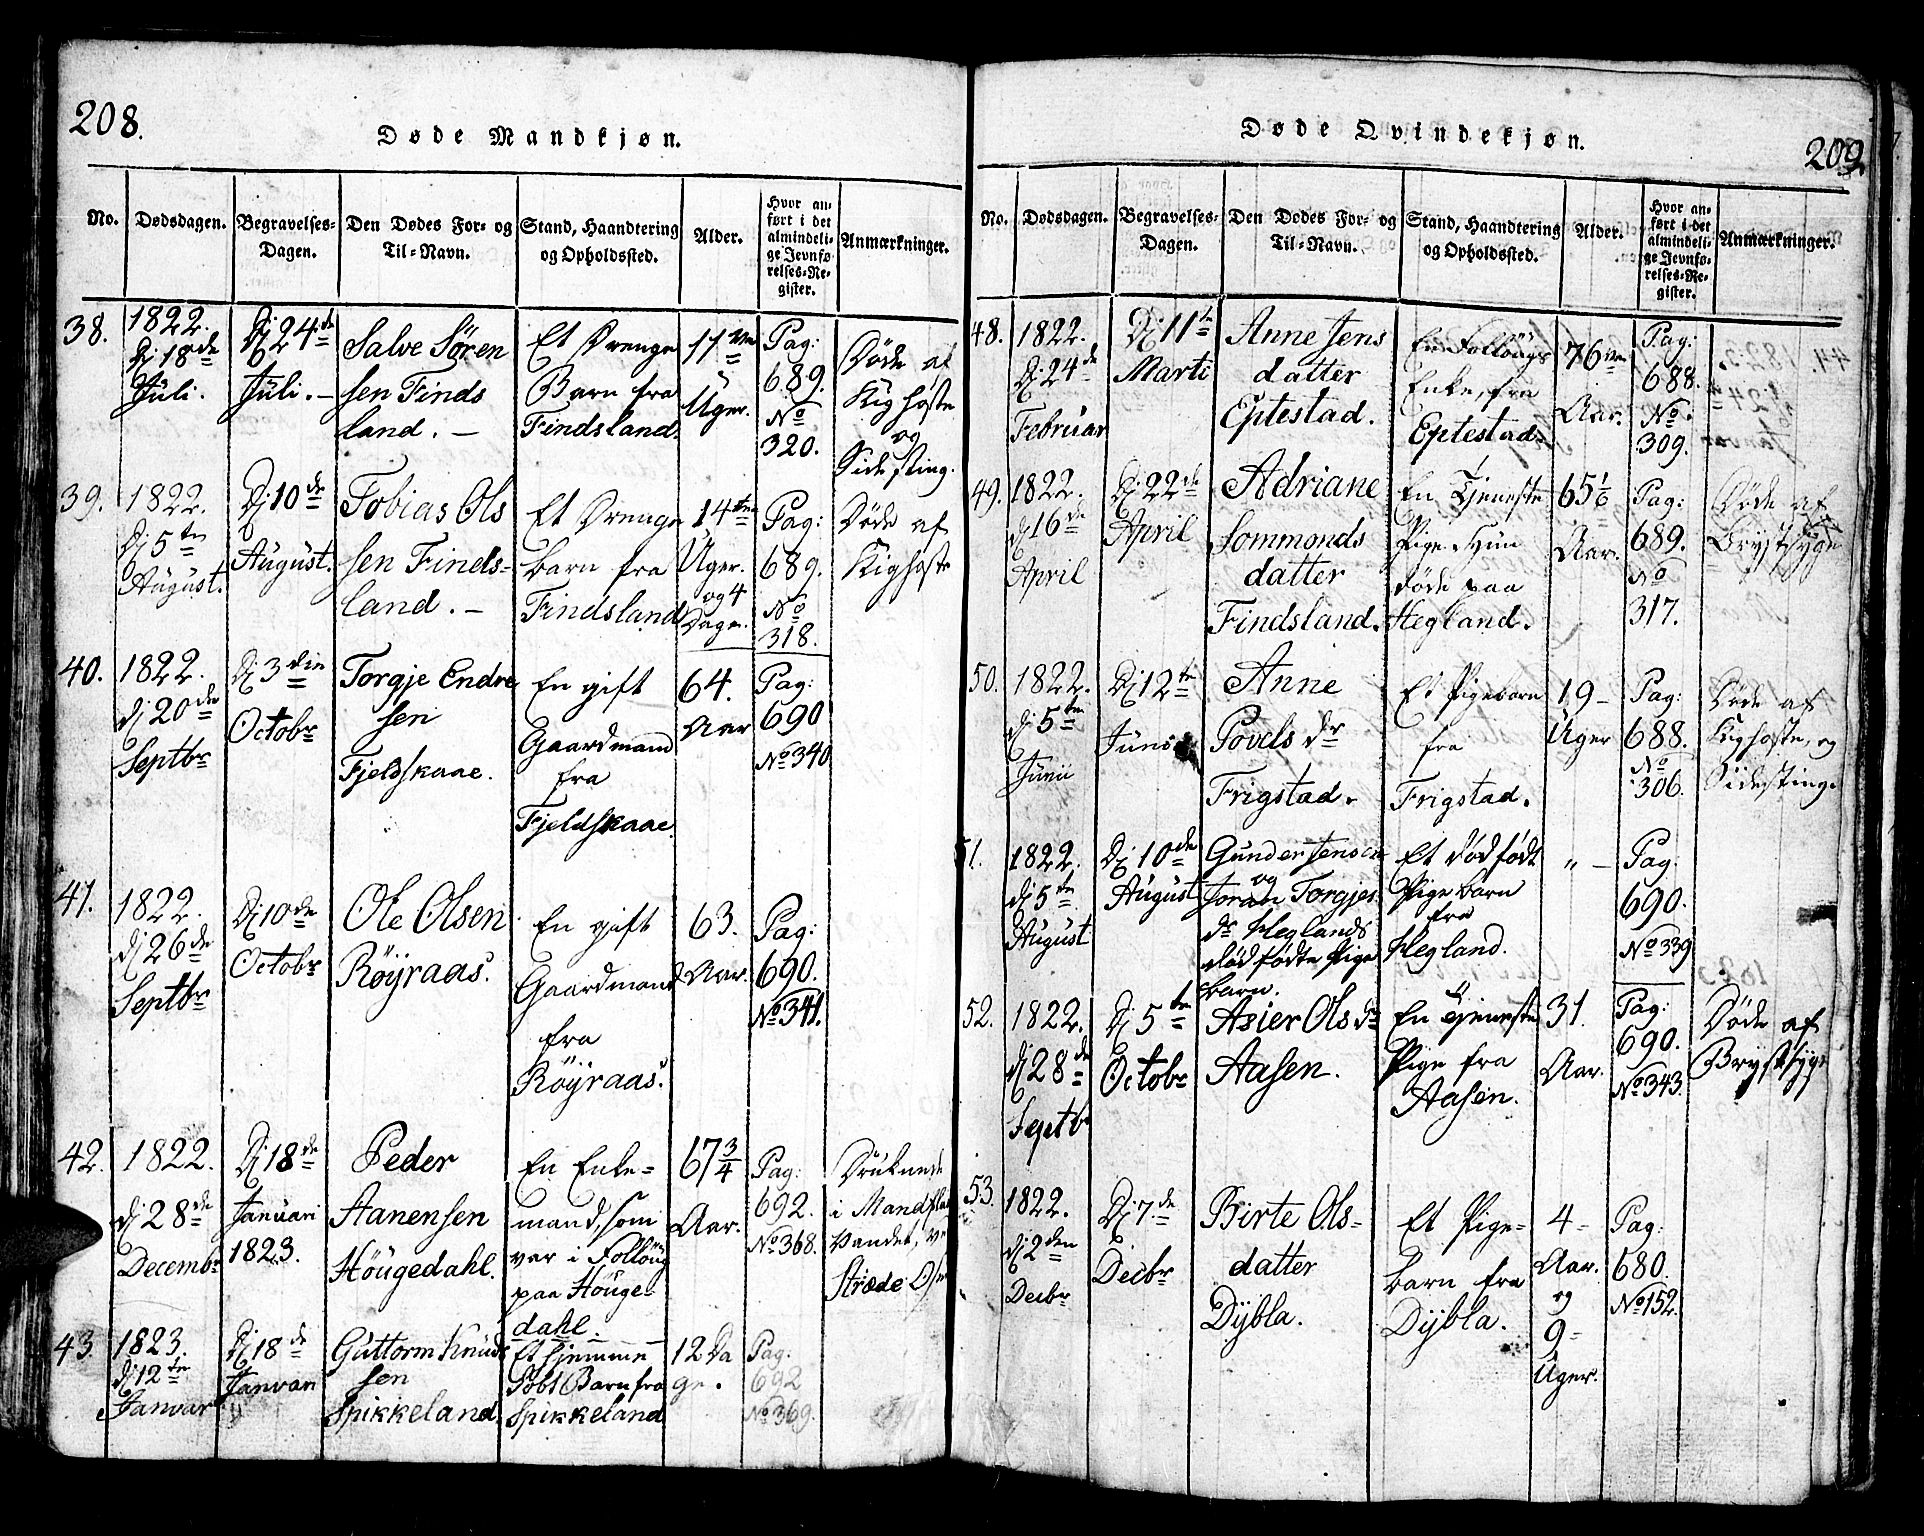 208.
Døde Mandkjøn.
No. Dødsdagen. Begravelses-Dagen. Den Dødes For- og Til-Navn. Stand, Haandtering og Opholdssted. Alder. Hvor anført i det almindelige Jevnførelses-Register. Anmærkninger.
38.
1822.
Dj 18de
Juli.
Dj 24de
Juli. –
Salve Søren
sen Finds
land. –
Et Drenge
Barn fra
Findsland.
17
Uger.
Pag:
689.
No
320.
Døde af
Kighoste
og
Sidesting.
39.
1822.
Dj 5te
August.
Dj 10de
August.
Tobias Ols
sen Finds-
land. –
Et Drenge
barn fra
Findsland
14ten
Uger.
og 4
Dage.
Pag:
689.
No
318.
Døde af
Kighoste
40.
1822.
dj 20de
Septbr
Dj 3die
Octobr
Torgje Endre
sen
Fjeldskaae.
En gift
Gaardmand
fra
Fjeldskaae.
64.
Aar
Pag:
690
No 340
41.
1822.
dj 26de
Septbr
Dj 10de
Octobr
Ole Olsen
Röÿraas.
En gift
Gaardmand
fra
Röÿraas.
63.
Aar.
Pag:
690.
No 341.
42.
1822.
dj 28de
Decembr
Dj 18de
Januari
1823.
Peder
Aanensen
Höugedahl.
En Enke-
mand, som
var i Follöug
paa Höuge-
dahl.
67 3/4
Aar.
Pag:
692.
No 368.
Druknede
i
Vandet,
43.
1823.
dj 12te
Januar
Dj 18de
Januari
Guttorm Knuds
sen
Spikkeland
Et hjemme
döbt Barn fra
Spikkeland
12 Da
ge.
Pag.
692
No 369.
Døde Qvindekjøn.
209
No. Dødsdagen. Begravelses-Dagen. Den Dødes For- og Til-Navn. Stand, Haandtering og Opholdssted. Alder. Hvor anført i det almindelige Jevnførelses-Register. Anmærkninger.
48.
1822.
Dj 24de
Februar
Dj 11te
Marti
Anne Jens
datter
Eptestad.
En Follöugs
Enke, fra
Eptestad.
76
Aar.
Pag:
688.
No.
309.
49.
1822.
dj 16de
April
Dj 22de
April
Adriane
Sommonds
datter
Findsland.
En Tjeneste
Pige. Hun
döde paa
Hegland.
65 1/6
Aar.
Pag:
689.
No
317.
Døde af
Brystsyge
50.
1822.
dj 5te
Junii
Dj 12te
Juni
Anne
Povels dr
Frigstad.
Et Pigebarn
fra
Frigstad.
19 –
Uger
Pag:
688.
No
306.
Døde af
Kighoste, og
Sidesting.
51.
1822.
dj 5te
August
Dj 10de
August
Gunder Jensen
og
Joran Torgjes
dr Heglands
dödfödte Pige
barn.
Et dödfödt
Pigebarn
fra
Hegland.
" –
Pag.
690.
No 339
52.
1822.
dj 28de
Septbr
Dj 5te
Octobr
Asier Ols dr
Aasen.
En Tjeneste
Pige fra
Aasen.
31.
Aar.
Pag:
690.
No 343.
Døde af
Brystsyge
53.
1822.
dj 2den
Decbr
Dj 7de
Decbr
Birte Ols-
datter
Dÿbla.
Et Pige-
barn fra
Dÿbla.
4 –
Aar.
og
9 –
Uger.
Pag:
680.
No 152.